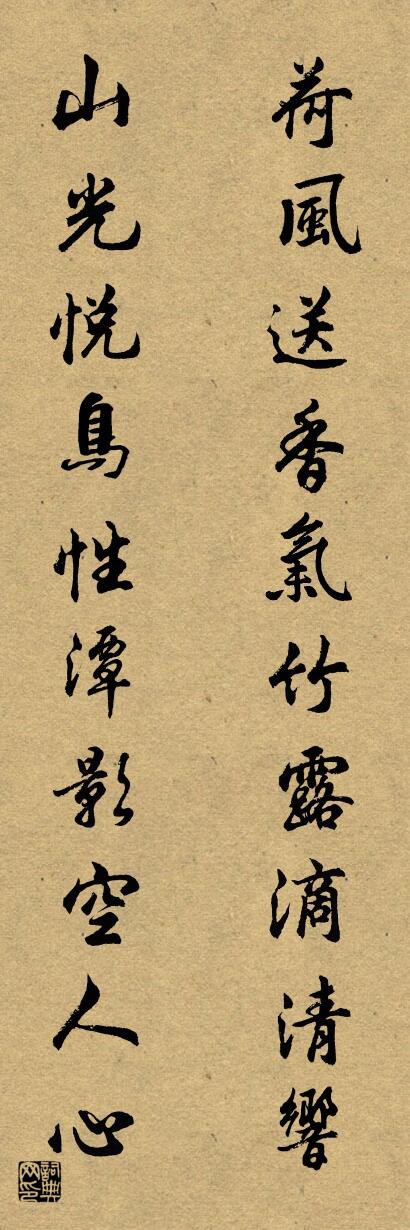 荷風送香氣竹露滴清響
山光悅鳥性潭影空人心
詞典網印